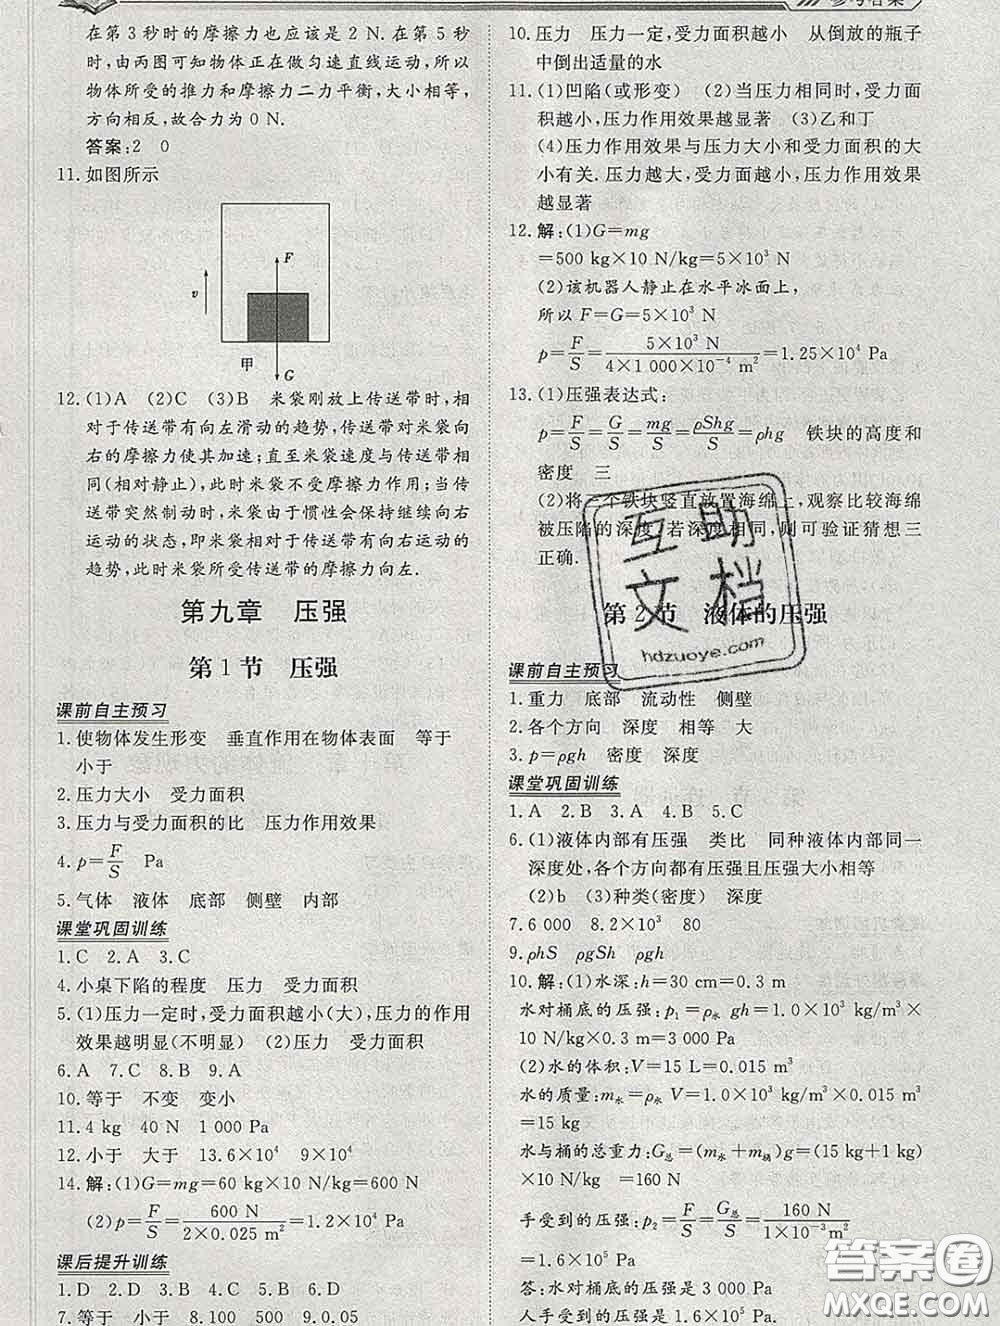 参考答案
在第3秒时的摩擦力也应该是2 N.在第5秒
时,由两图可知物体正在做匀速直线运动,所以
物体所受的推力和摩擦力二力平衡,大小相等,
方向相反,故合力为0 N.
答案:2 0
11.如图所示
F
v
甲
G
12.(1)A (2)C (3)B 米袋刚放上传送带时,相
对于传送带有向左滑动的趋势,传送带对米袋向
右的摩擦力使其加速;直至米袋速度与传送带相
同(相对静止),此时米袋不受摩擦力作用;当传
送带突然制动时,米袋由于惯性会保持继续向右
运动的状态,即米袋相对传送带有向右运动的
趋势,此时米袋所受传送带的摩擦力向左.
第九章 压强
第1节 压强
课前自主预习
1.使物体发生形变 垂直作用在物体表面 等于
小于
2.压力大小 受力面积
3.压力与受力面积的比 压力作用效果
4.p=F/S Pa
5.气体 液体 底部 侧壁 内部
课堂巩固训练
1.C 2.A 3.C
4.小桌下陷的程度 压力 受力面积
5.(1)压力一定时,受力面积越小(大),压力的作用
效果越明显(不明显) (2)压力 受力面积
6.A 7.C 8.B 9.A
10.等于 不变 变小
11.4 kg 40 N 1 000 Pa
12.小于 大于 13.6×10⁴ 9×10⁴
14.解:(1)G=mg=60 kg×10 N/kg=600 N
(2)p=F/S=600 N/(2×0.025 m²)=1.2×10⁴ Pa
课后提升训练
1.D 2.D 3.B 4.C 5.B 6.B
7.等于 小于 8.100 500 9.0.05
10.压力 压力一定,受力面积越小 从倒放的瓶子
中倒出适量的水
11.(1)凹陷(或形变) (2)当压力相同时,受力面
积越小,压力作用效果越显著 (3)乙和丁
(4)压力作用效果与压力大小和受力面积的大
小有关.压力越大,受力面积越小,压力作用效果
越显著
12.解:(1)G=mg
=500 kg×10 N/kg=5×10³ N
(2)该机器人静止在水平冰面上,
所以 F=G=5×10³ N
p=F/S=5×10³ N/(4×1 000×10⁻⁴ m²)=1.25×10⁴ Pa
13.(1)压强表达式:
p=F/S=G/S=mg/S=ρShg/S=ρhg 铁块的高度和
密度 三
(2)将三个铁块竖直放置海绵上,观察比较海绵
被压陷的深度,若深度相同,则可验证猜想三
正确.
互助文档
hdzuoye.com
第2节 液体的压强
课前自主预习
1.重力 底部 流动性 侧壁
2.各个方向 深度 相等 大
3.p=ρgh 密度 深度
课堂巩固训练
1.A 2.B 3.A 4.B 5.C
6.(1)液体内部有压强 类比 同种液体内部同一
深度处,各个方向都有压强且压强大小相等
(2)b (3)种类(密度) 深度
7.6 000 8.2×10³ 80
9.ρhS ρgSh ρgh
10.解:(1)水深:h=30 cm=0.3 m
水对桶底的压强:p₁=ρ水 gh=1.0×10³ kg/m³×
10 N/kg×0.3 m=3 000 Pa
(2)水的体积:V=15 L=0.015 m³
水的质量:m水=ρ水 V=1.0×10³ kg/m³×0.015 m³
=15 kg
水与桶的总重力:G总=(m水+m桶)g=(15 kg+1 kg)
×10 N/kg =160 N
手受到的压强:p₂=F/S=G总/S=160 N/(1×10⁻³ m²)
=1.6×10⁵ Pa
答:水对桶底的压强是3 000 Pa
人手受到的压强是1.6×10⁵ Pa.
答案圈
MXQE.COM